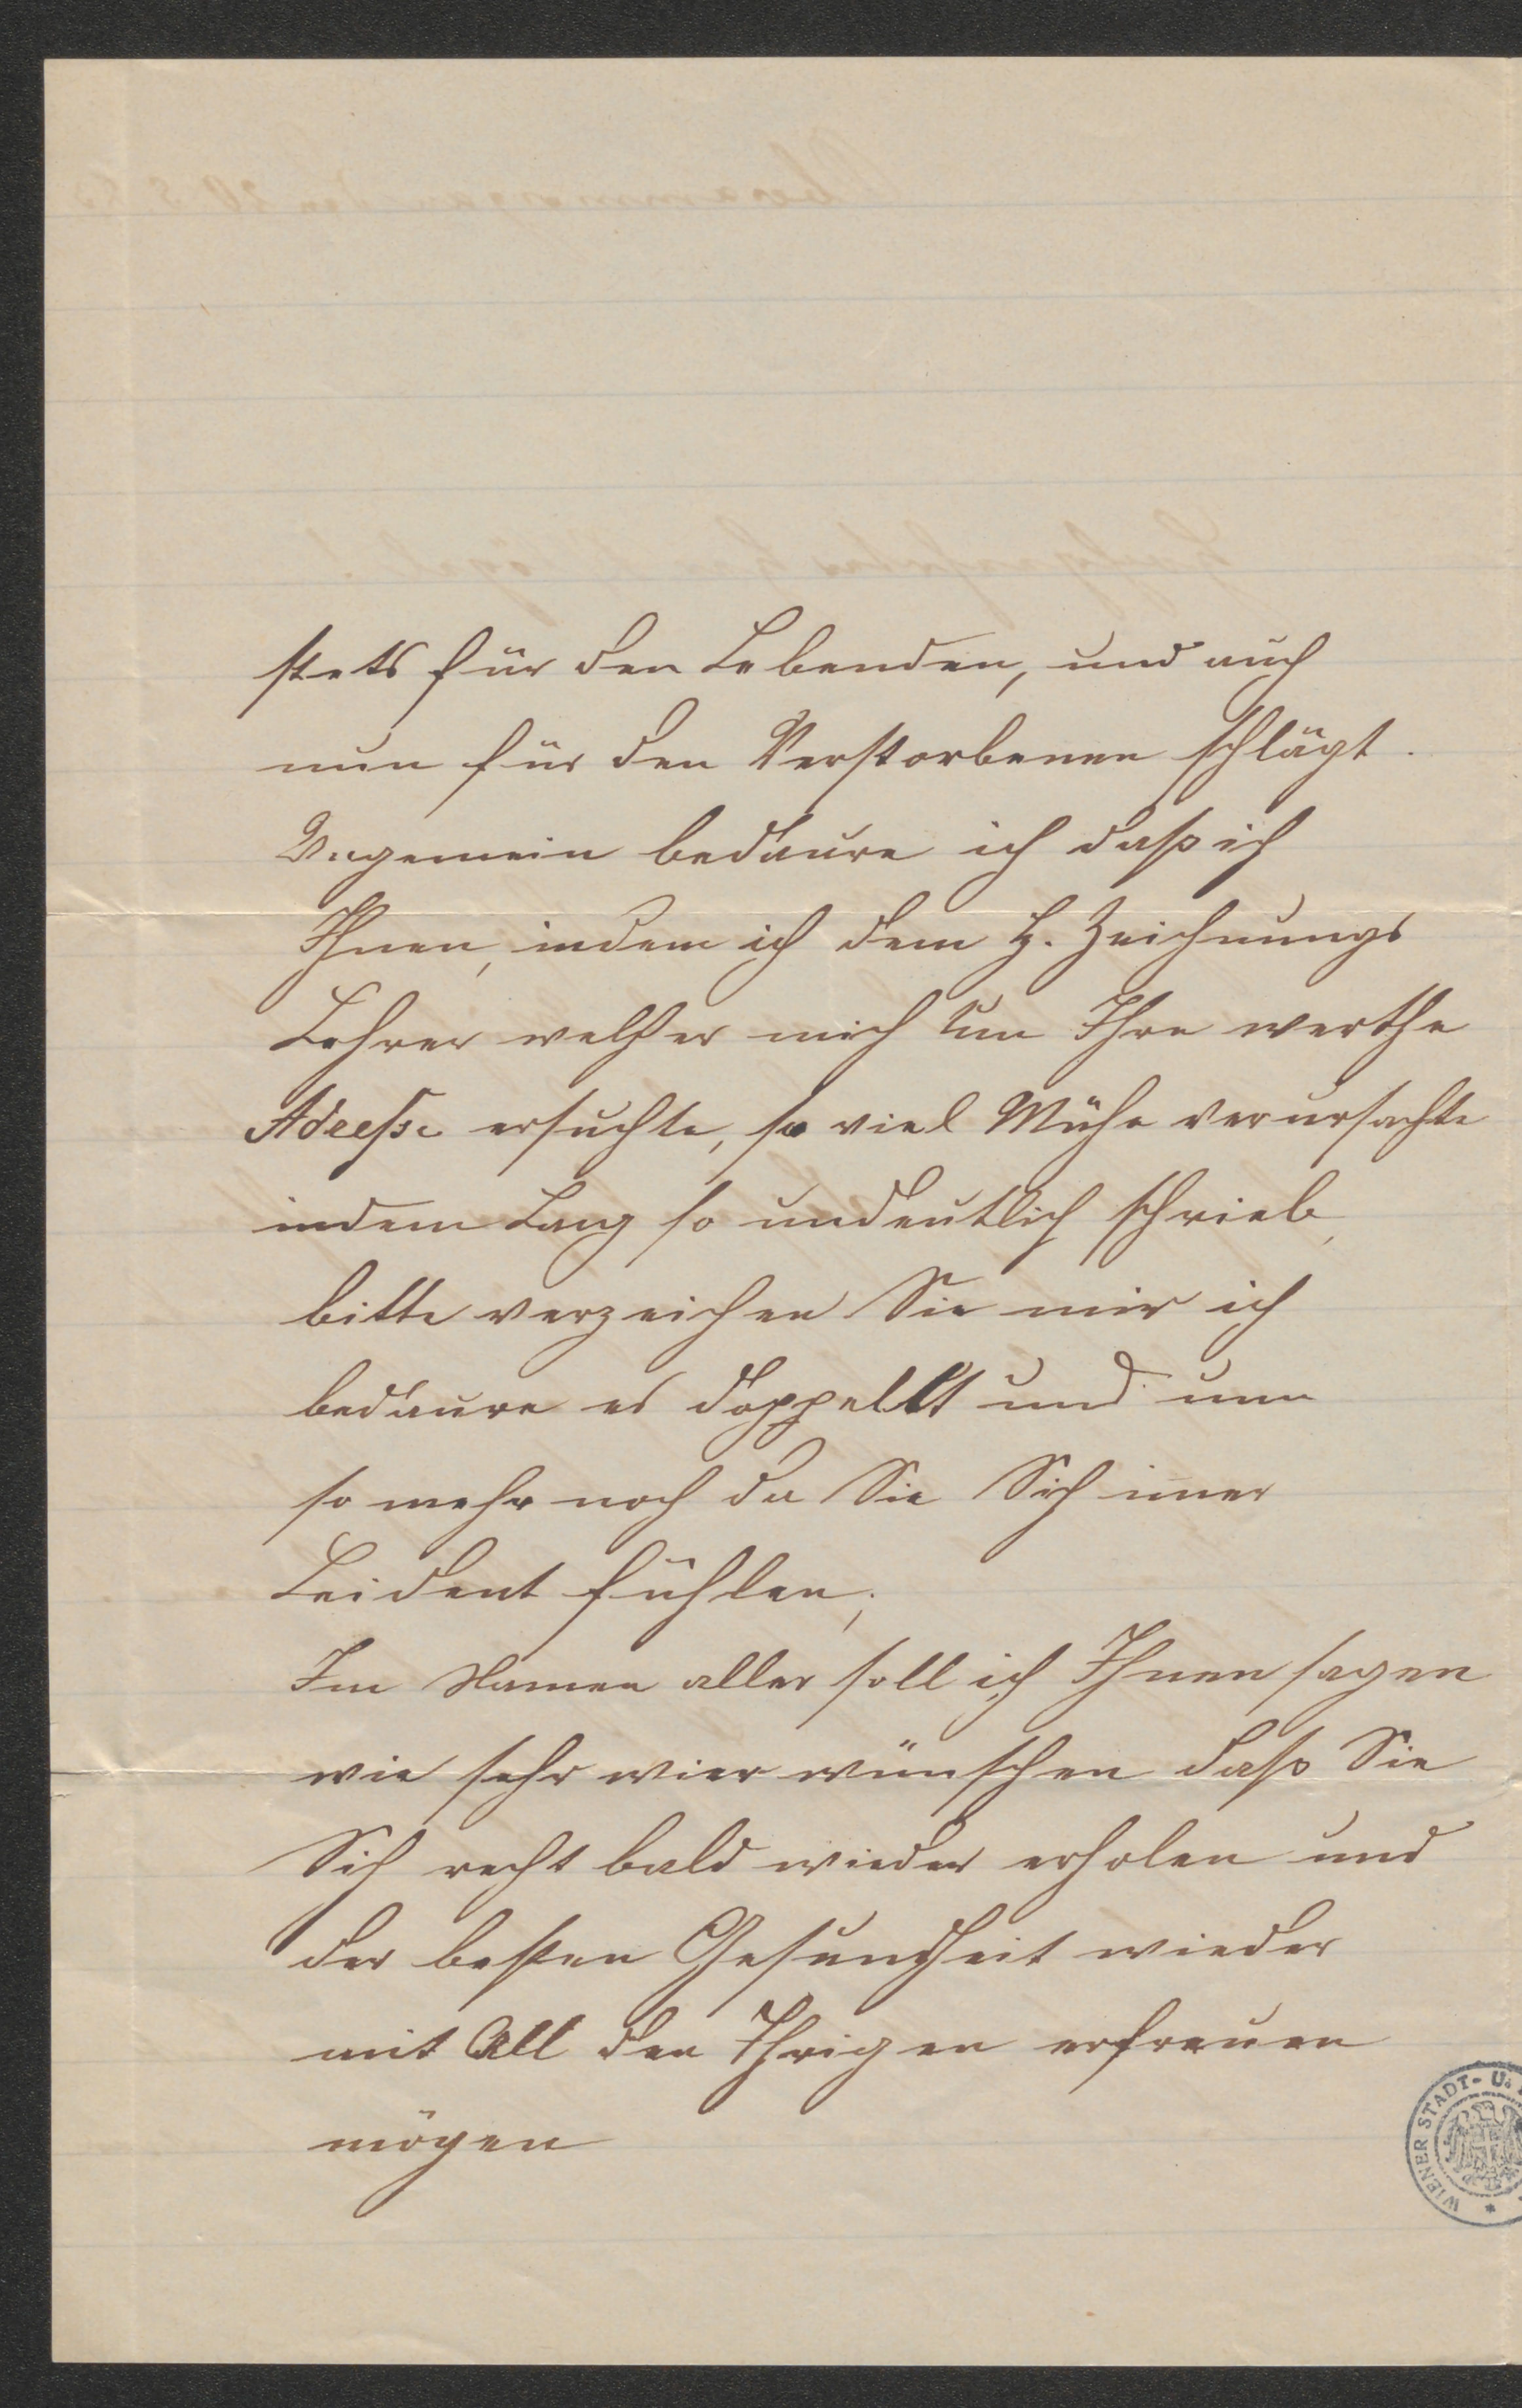 stets für den Lebenden, und auch
nun für den Verstorbenen schlägt.
Ungemein bedaure ich daß ich
Ihnen, indem ich dem H. Zeichnungs
Lehrer welcher mich um Ihre werthe
Adresse ersuchte, so viel Mühe verursachte
indem Lang so undeutlich schrieb,
bitte verzeichen Sie mir ich
bedaure es doppellt und um
so mehr noch da Sie Sich im̄er
Leident fühlen,
Im Namen aller soll ich Ihnen sagen
wie sehr wier wünschen daß Sie
Sich recht bald wieder erholen und
der besten Gesundheit wieder
mit All den Ihrigen erfreuen
mögen
WIENER STADT- U.